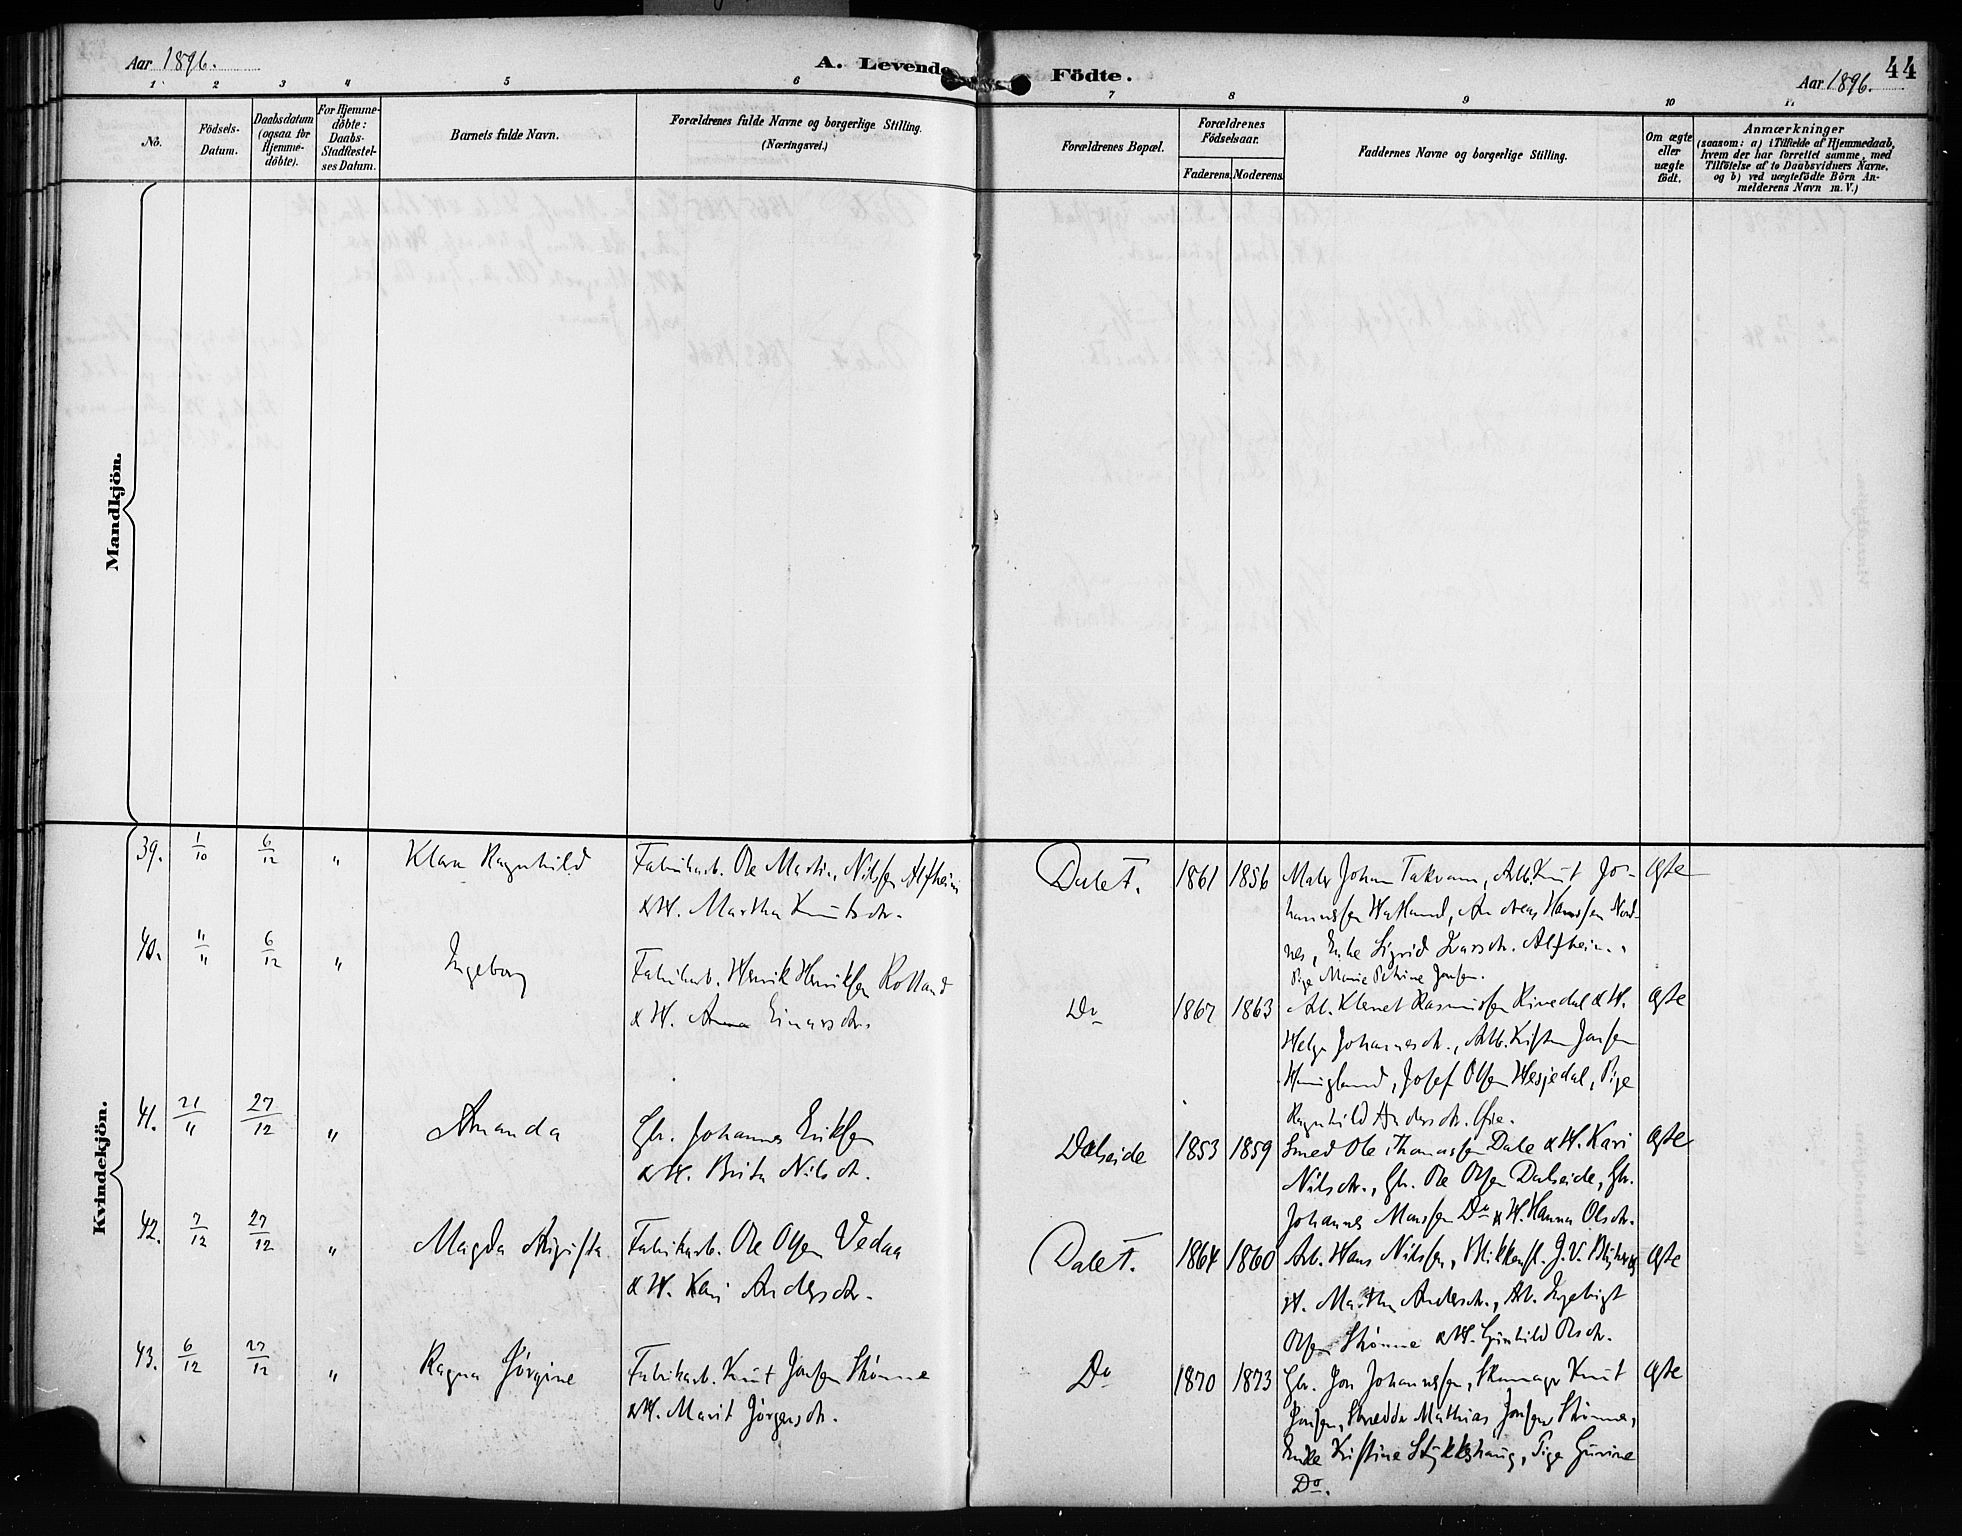 Aar 1896.
A. Levende Födte.
44
Aar 1896.
1 2 3 4 5 6 7 8 9 10 11
No.
Födsels-
Datum.
Daabsdatum
(ogsaa for
Hjemme-
döbte).
For Hjemme-
döbte:
Daabs-
Stadfæstel-
ses Datum.
Barnets fulde Navn.
Forældrenes fulde Navne og borgerlige Stilling.
(Næringsvei.)
Forældrenes Bopæl.
Forældrenes
Födselsaar.
Faderens. Moderens.
Faddernes Navne og borgerlige Stilling.
Om ægte
eller
uægte
födt.
Anmærkninger
(saasom: a) i Tilfælde af Hjemmedaab,
hvem der har forrettet samme, med
Tilföielse af to Daabsvidners Navne,
og b) ved uægtefödte Börn An-
melderens Navn m. V.)
Mandkjön.
Kvindekjön.
39. 1/10 6/12 " Klara Ragnhild
Fabrikarb. Ole Martin Nilssen Alfheim
& H. Martha Knutsdr.
Dale F. 1861 1856
Maler Johan Takvam, Arb. Knut Jo-
hannessen Hatland, Andreas Hanssen Nord-
nes, Enke Sigrid Larsdr. Alfheim,
Pige Marie Petrine Jonsen.
Ægte
40. "/" 6/12 " Ingeborg
Fabrikarb. Henrik Henriksen Rolland
& H. Anna Einarsdr.
Do 1867 1863
Arb. Klemet Rasmussen Rivedal & H.
Helga Johannesdr., Arb. Kristen Jonsen
Josef Olsen Hesjedal, Pige
Ragnhild Andersdr. Øie.
Ægte
41. 21/11 27/12 " Amanda
Gbr. Johannes Eriksen
& H. Brita Nilsdr.
Dalseide 1853 1859
Smed Ole Thomassen Dale & H. Kari
Nilsdr., Gbr. Ole Olsen Dalseide, Gbr.
Johannes Monssen Do & H. Hanna Olsdr.
Ægte
42. 7/12 27/12 " Magda Augusta
Fabrikarb. Ole Olsen Vedaa
& H. Kari Andersdr.
Dale F. 1864 1860
Arb. Hans Nilssen, Blikkensl. J. V.
H. Martha Andersdr., Arb. Ingebrigt
Olsen Skønne & H. Gunhild Olsdr.
Ægte
43. 6/12 27/12 " Ragna Jørgine
Fabrikarb. Knut Jonsen Skønne
& H. Marit Jørgensdr.
Do 1870 1873
Gbr. Jon Johannessen, Skomager Knut
Jonsen, Skrædder Mathias Jonsen Skønne,
Enke Kristine Stykkshaug, Pige Gurine
Do.
Ægte